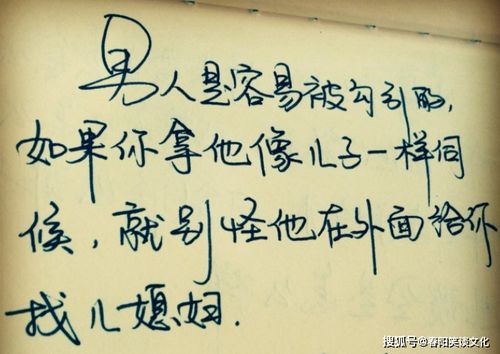 男人是容易被勾引的,
如果你拿他像儿子一样伺
候,就别怪他在外面给你
找儿媳妇.
搜狐号@春阳笑谈文化